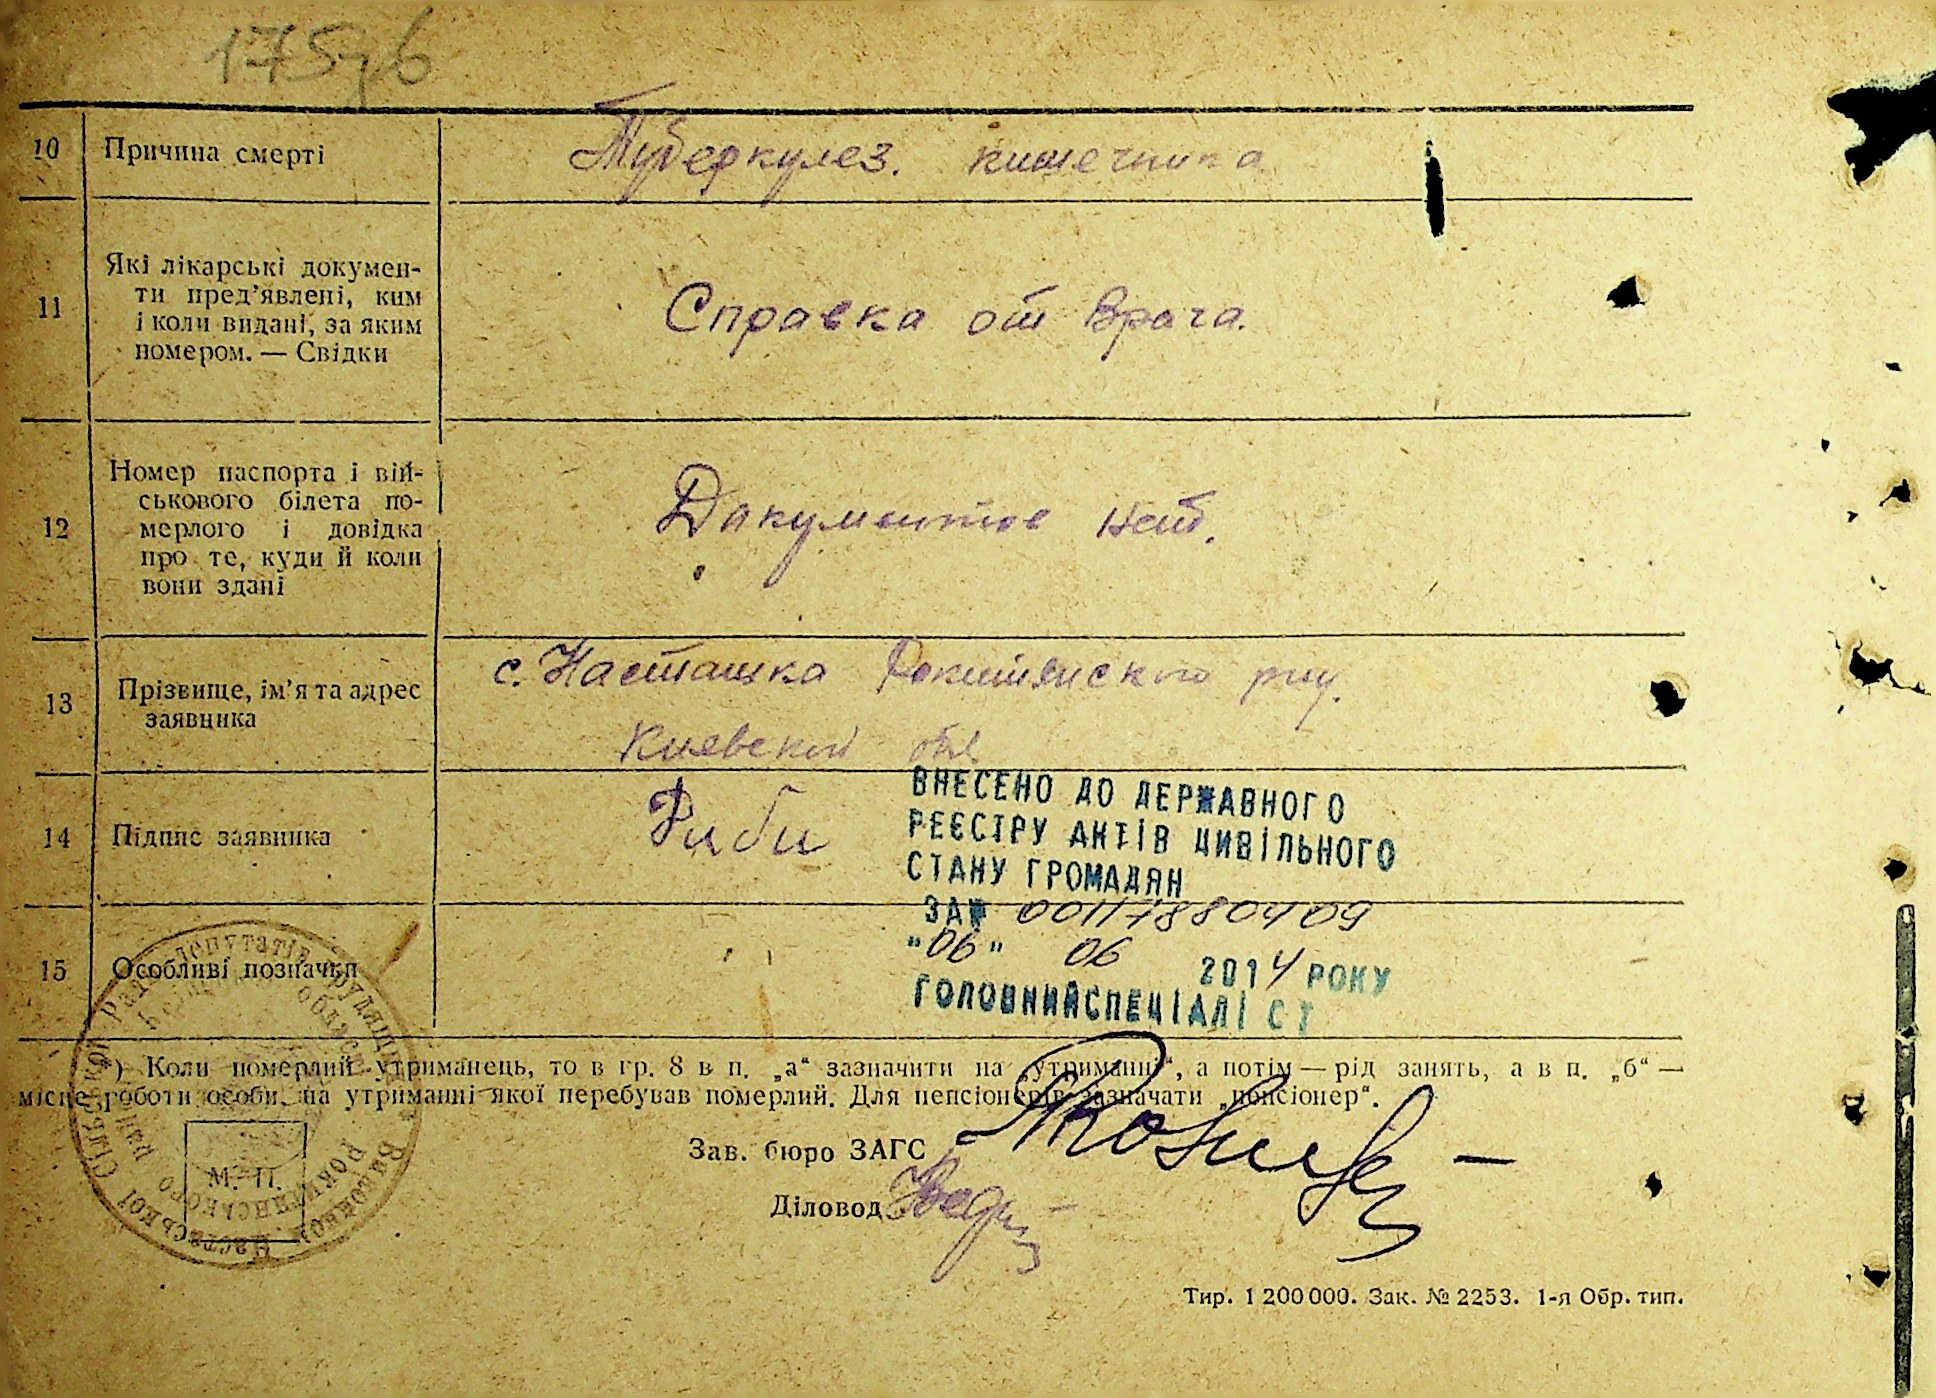 175
10 Причина смерті Туберкулез. кишечника
11 Які лікарські докумен-
ти пред'явлені, ким
і коли видані, за яким
номером. — Свідки
Справка от врача.
12 Номер паспорта і вій-
ськового білета по-
мерлого і довідка
про те, куди й коли
вони здані
Дакументов нет.
13 Прізвище, ім'я та адрес
заявника
с. Насташка Рокитянского
Киевской обл
14 Підпис заявника
ВНЕСЕНО ДО ДЕРЖАВНОГО
РЕЄСТРУ АКТІВ ЦИВІЛЬНОГО
СТАНУ ГРОМАДЯН
ЗА№ 00117880409
"06" 06 2014 РОКУ
ГОЛОВНИЙ СПЕЦІАЛІСТ
15 Особливі позначки
*) Коли померлий утриманець, то в гр. 8 в п. „а“ зазначити на „утриманні“, а потім — рід занять, а в п. „б“ —
місце роботи особи, на утриманні якої перебував померлий. Для пенсіонерів зазначати „пенсіонер“.
Зав. бюро ЗАГС
М. П.
Діловод
Тир. 1 200 000. Зак. № 2253. 1-я Обр. тип.